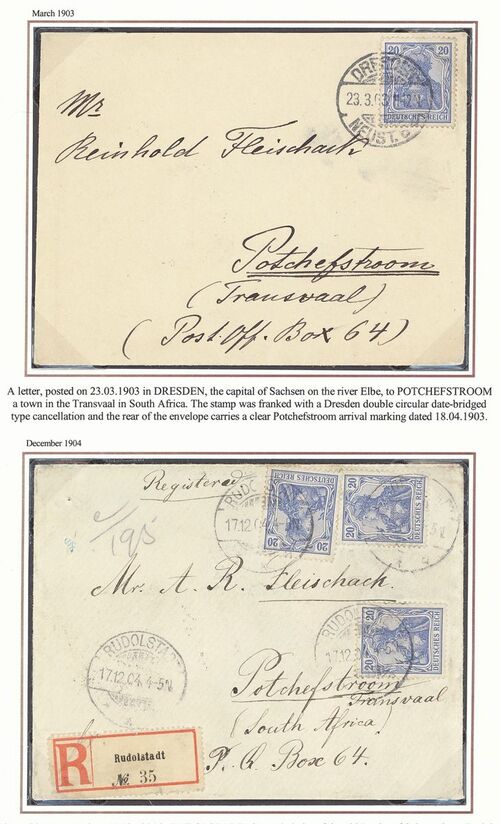 March 1903
20 20
DEUTSCHES REICH
DRESDEN
23.3.03. 11-12 V.
NEUST. 6
Mr
Reinhold Fleischack
Potchefstroom
(Transvaal)
(Post. Off. Box 64)
A letter, posted on 23.03.1903 in DRESDEN, the capital of Sachsen on the river Elbe, to POTCHEFSTROOM
a town in the Transvaal in South Africa. The stamp was franked with a Dresden double circular date-bridged
type cancellation and the rear of the envelope carries a clear Potchefstroom arrival marking dated 18.04.1903.
December 1904
Registered
RUDOLSTADT
17.12.04. 4-5N
20 20
DEUTSCHES REICH
20
DEUTSCHES REICH
Mr. A. R. Fleischack
RUDOLSTADT
17.12.04. 4-5N
RUDOLSTADT
17.12.04
20 20
DEUTSCHES REICH
Potchefstroom
Transvaal
(South Africa)
P. O. Box 64.
R
Rudolstadt
No 35